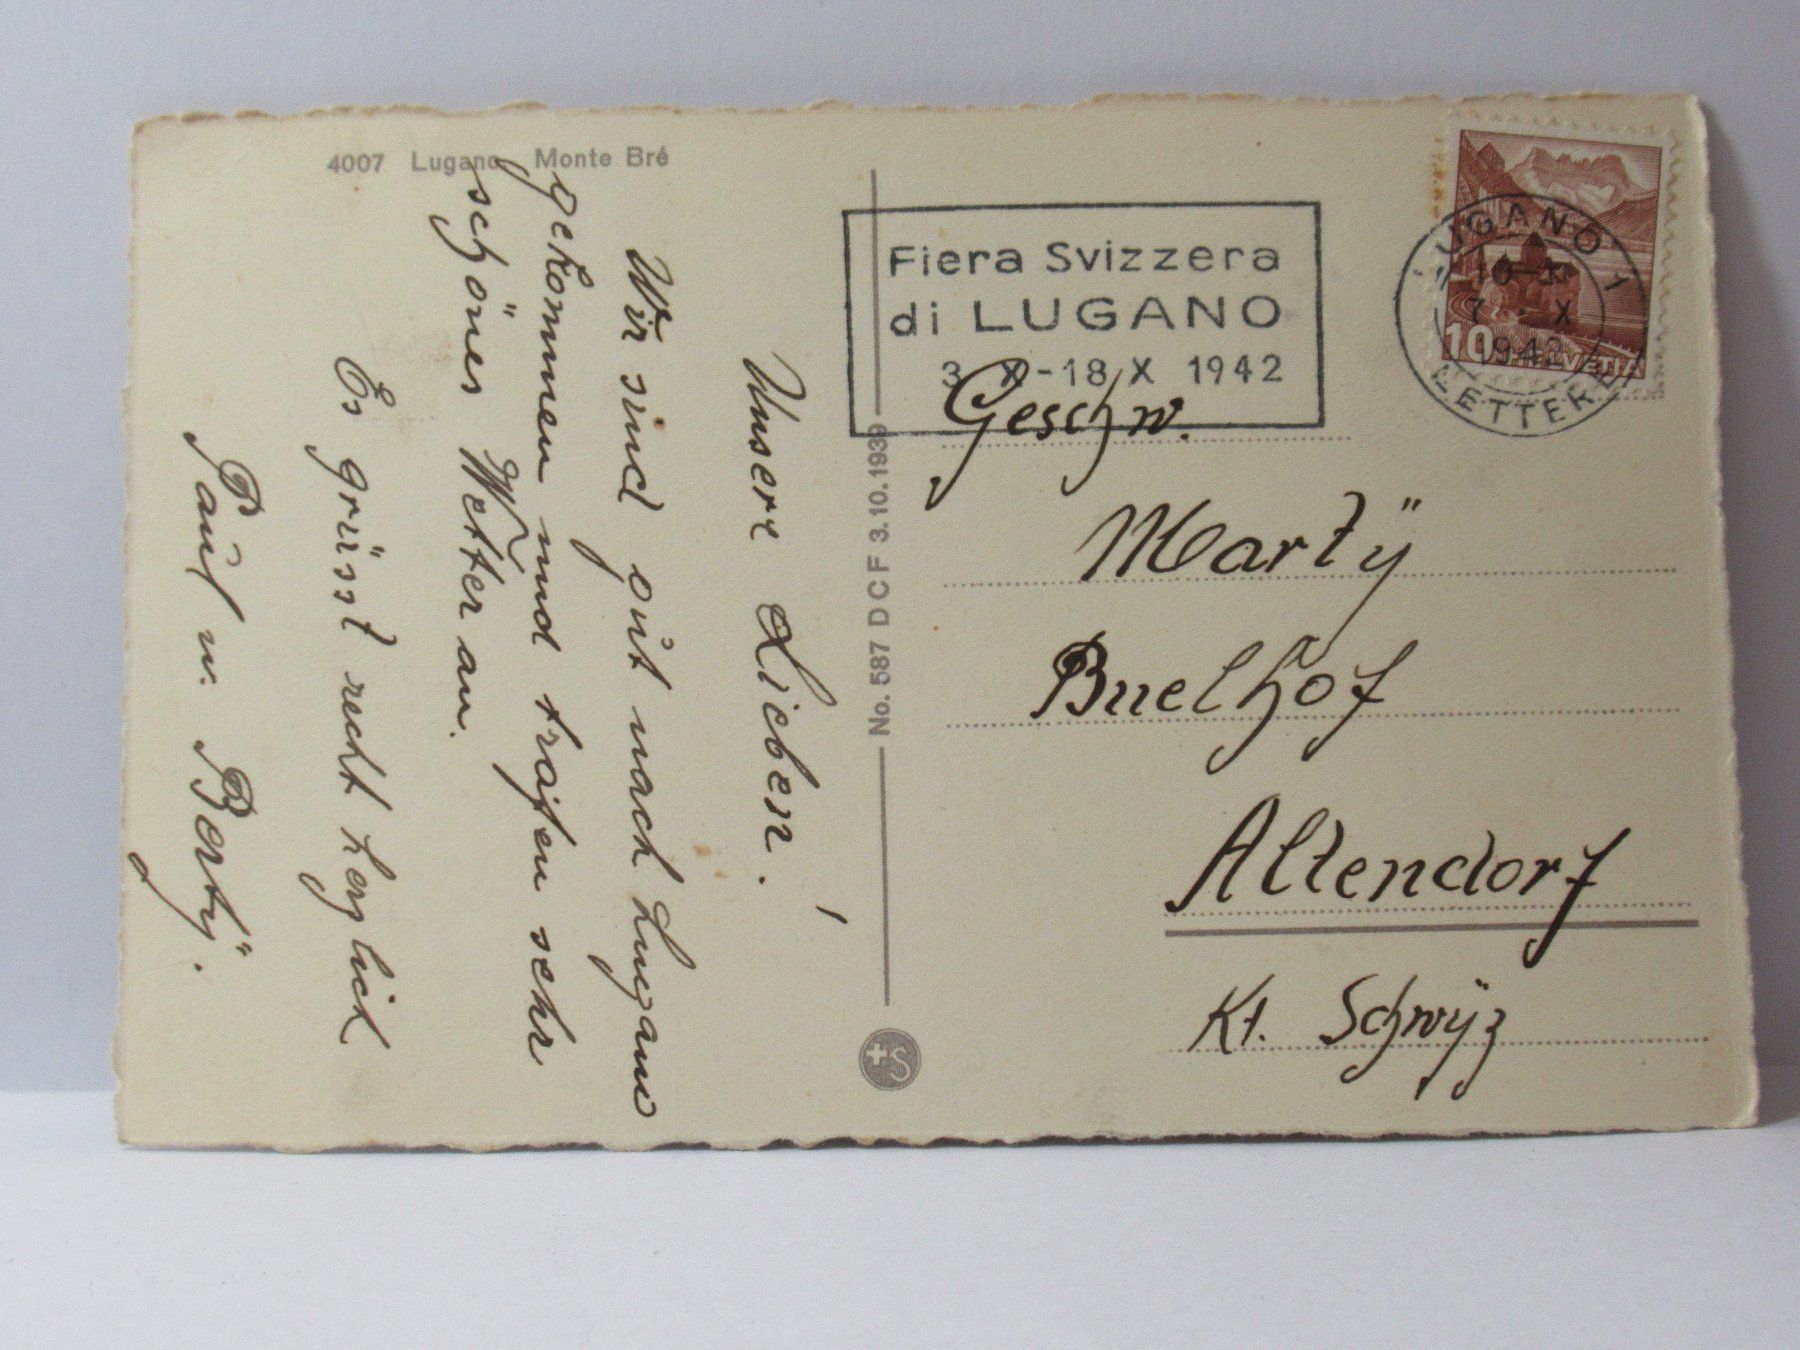 4007 Lugano Monte Bré
Unsere Lieben.
Wir sind gut nach Lugano
gekommen und trafen sehr
schönes Wetter an.
Es grüsst recht herzlich
Paul u. Bertÿ.
No. 587 D C F 3.10.1939
+S
Fiera Svizzera
di LUGANO
3 X-18 X 1942
LUGANO 1
7 X
1942
LETTERE
10 HELVETIA
Geschw.
Martÿ
Buelhof
Altendorf
Kt. Schwÿz